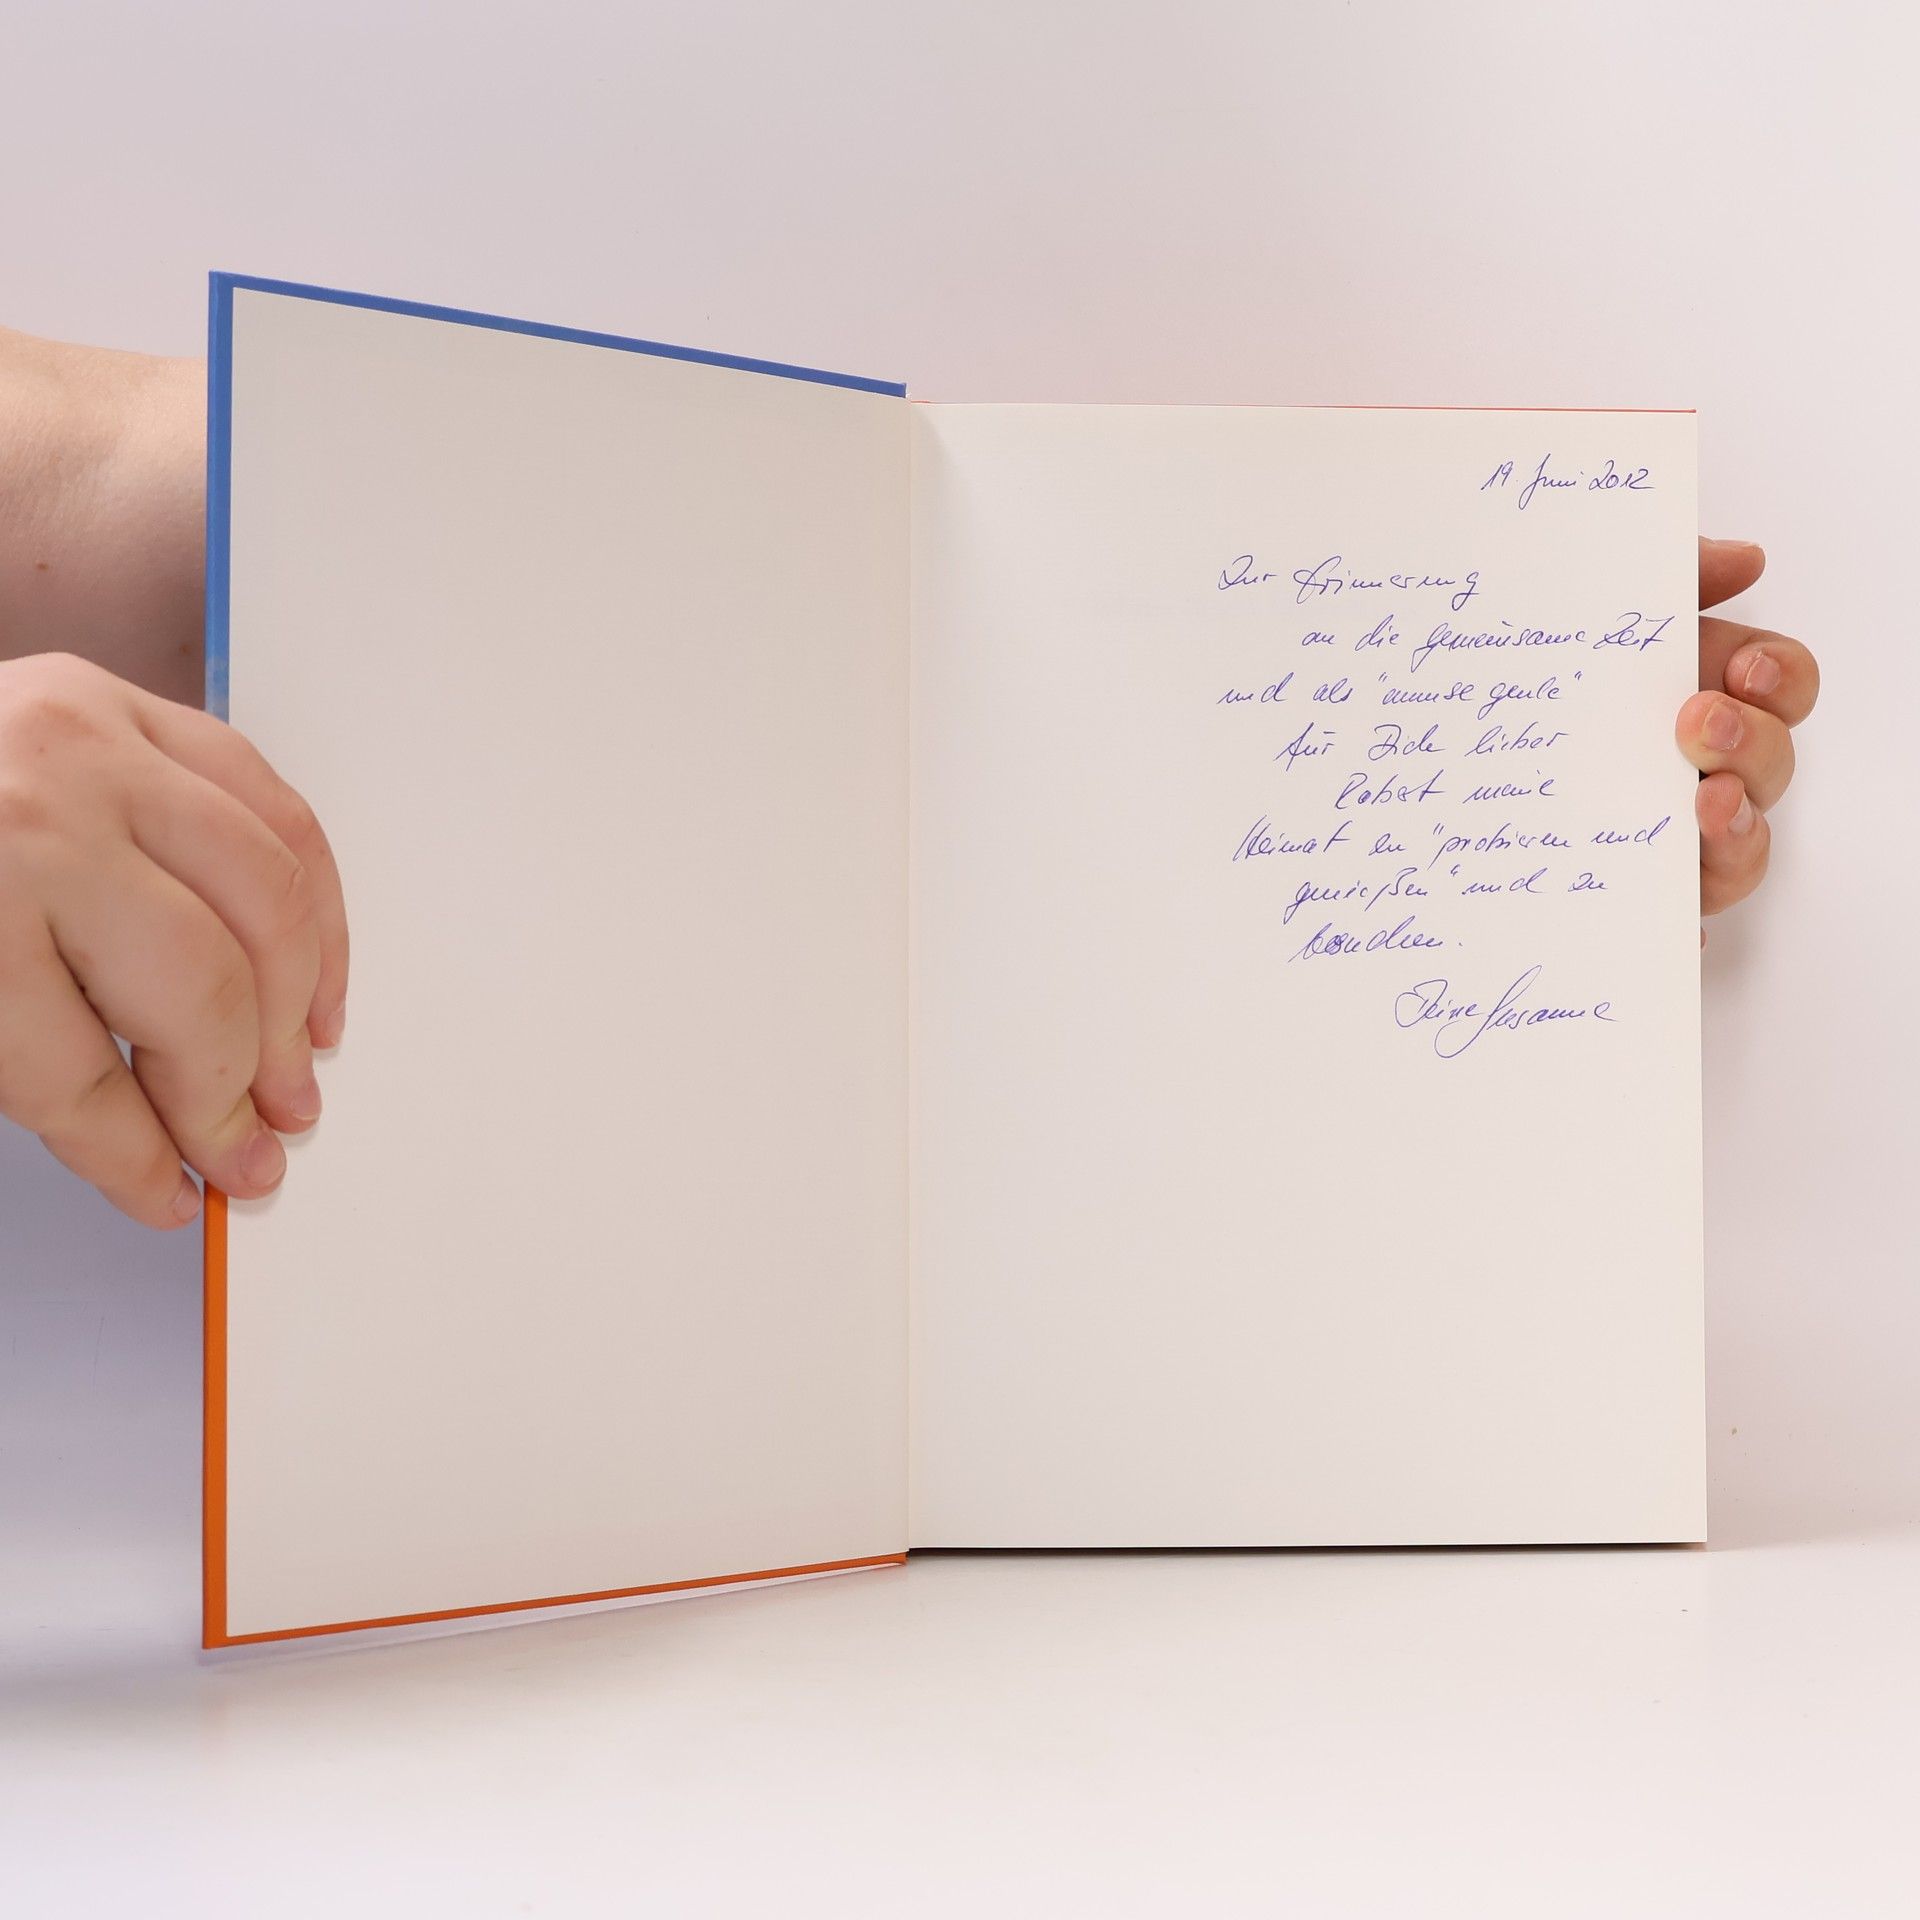 19. Juni 2012
Zur Erinnerung
an die gemeinsame Zeit
und als "amuse geule"
für Dich lieber
Robert meine
Heimat zu "probieren und
genießen" und zu
besuchen.
Deine Susanne